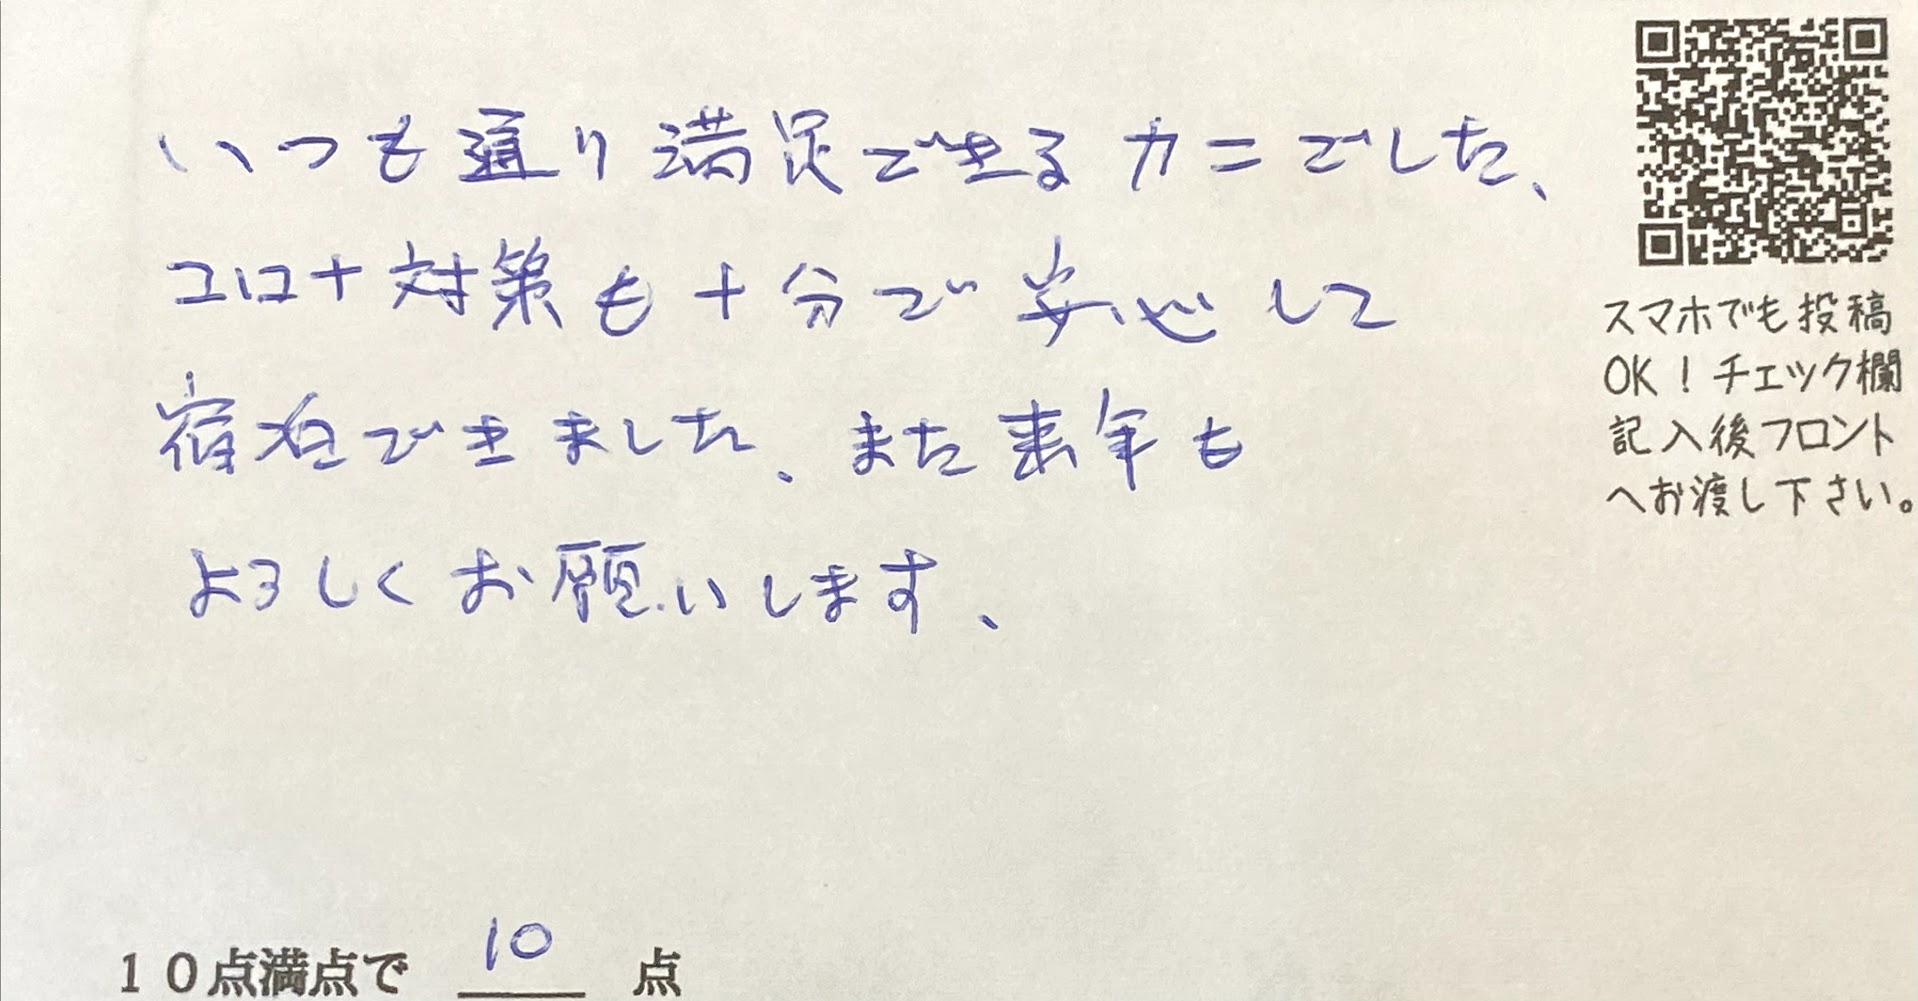 いつも通り満足できるカニでした、
コロナ対策も十分で安心して
宿泊できました、また来年も
よろしくお願いします、
スマホでも投稿
OK！チェック欄
記入後フロント
へお渡し下さい。
１０点満点で 10 点